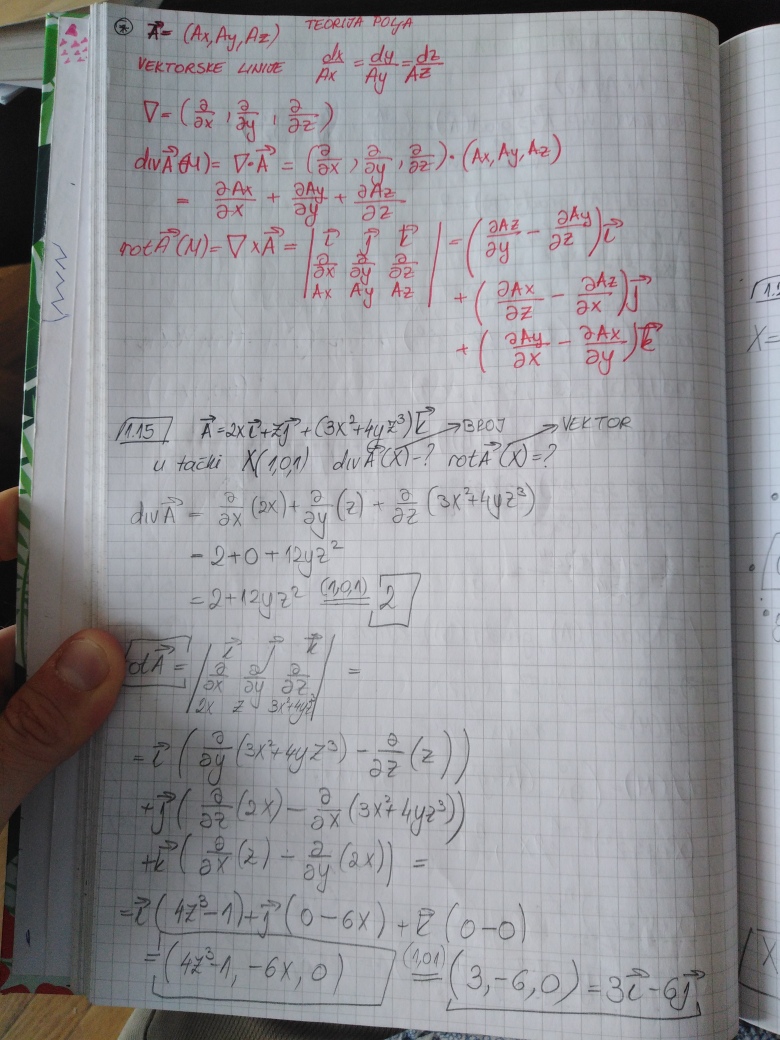 ⊛ A⃗ = (Ax, Ay, Az) TEORIJA POLJA
VEKTORSKE LINIJE dx/Ax = dy/Ay = dz/Az
∇ = (∂/∂x, ∂/∂y, ∂/∂z)
div A⃗(M) = ∇·A⃗ = (∂/∂x, ∂/∂y, ∂/∂z)·(Ax, Ay, Az)
= ∂Ax/∂x + ∂Ay/∂y + ∂Az/∂z
rot A⃗(M) = ∇×A⃗ = | i⃗ j⃗ k⃗ ; ∂/∂x ∂/∂y ∂/∂z ; Ax Ay Az | = (∂Az/∂y − ∂Ay/∂z) i⃗
+ (∂Ax/∂z − ∂Az/∂x) j⃗
+ (∂Ay/∂x − ∂Ax/∂y) k⃗
1.15 A⃗ = 2x i⃗ + z j⃗ + (3x²+4yz³) k⃗ → BROJ → VEKTOR
u tački X(1,0,1) div A⃗(X) = ? rot A⃗(X) = ?
div A⃗ = ∂/∂x (2x) + ∂/∂y (z) + ∂/∂z (3x²+4yz³)
= 2+0+12yz²
= 2+12yz² (1,0,1) = 2
rot A⃗ = | i⃗ j⃗ k⃗ ; ∂/∂x ∂/∂y ∂/∂z ; 2x z 3x²+4yz³ | =
= i⃗ (∂/∂y (3x²+4yz³) − ∂/∂z (z))
+ j⃗ (∂/∂z (2x) − ∂/∂x (3x²+4yz³))
+ k⃗ (∂/∂x (z) − ∂/∂y (2x)) =
= i⃗ (4z³−1) + j⃗ (0−6x) + k⃗ (0−0)
= (4z³−1, −6x, 0) (1,0,1) = (3, −6, 0) = 3i⃗ − 6j⃗